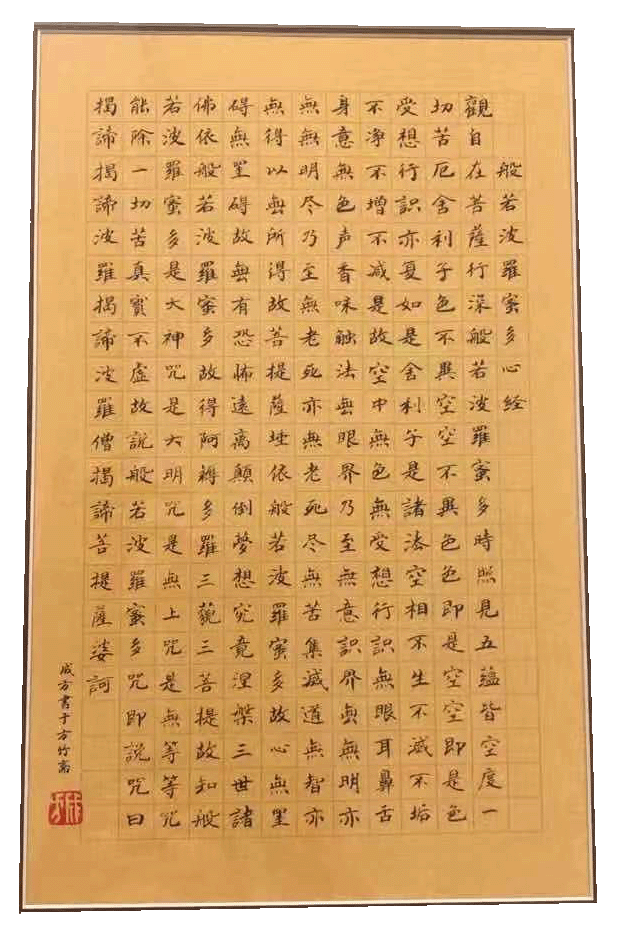 般若波羅蜜多心経
觀自在菩薩行深般若波羅蜜多時照見五蘊皆空度一
切苦厄舍利子色不異空空不異色色即是空空即是色
受想行識亦复如是舍利子是諸法空相不生不滅不垢
不淨不增不减是故空中無色無受想行識無眼耳鼻舌
身意無色声香味触法無眼界乃至無意識界無無明亦
無無明尽乃至無老死亦無老死尽無苦集滅道無智亦
無得以無所得故菩提薩埵依般若波羅蜜多故心無罣
碍無罣碍故無有恐怖遠离顛倒夢想究竟涅槃三世諸
佛依般若波羅蜜多故得阿耨多羅三藐三菩提故知般
若波羅蜜多是大神咒是大明咒是無上咒是無等等咒
能除一切苦真實不虛故說般若波羅蜜多咒即說咒曰
揭諦揭諦波羅揭諦波羅僧揭諦菩提薩婆訶
成方書于方竹斋